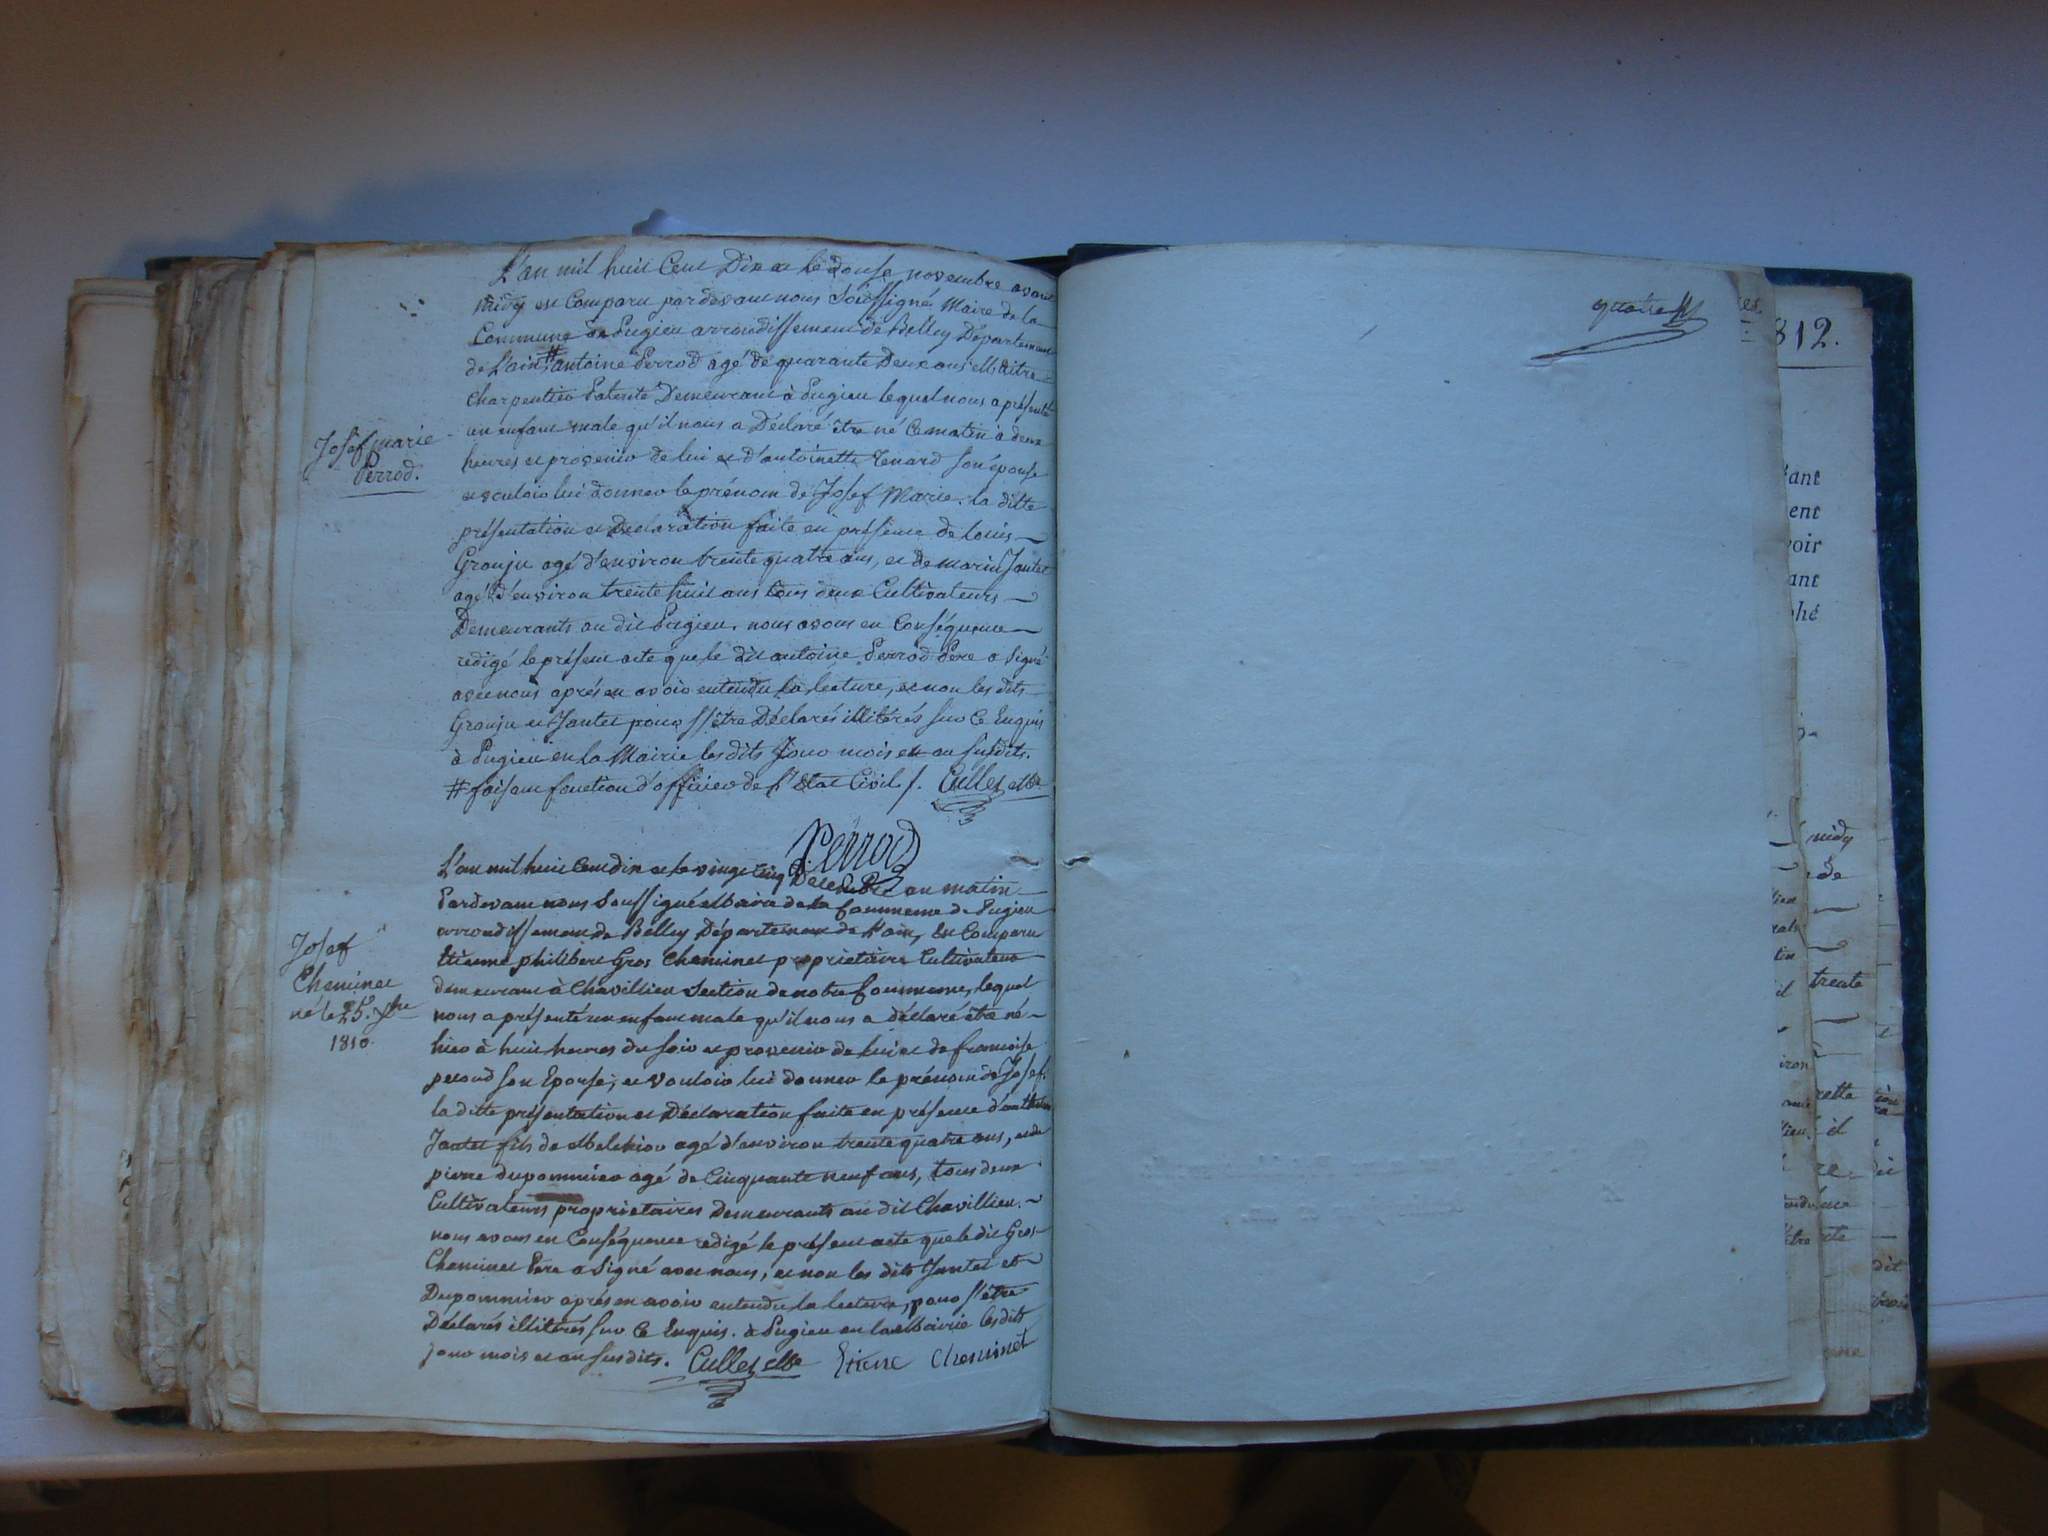 L'an mil huit Cent Dix et le douse novembre avant
midy est Comparu pardevant nous Soussigné Maire de la
Commune de Pugieu arrondissement de Belley Département
de L'ain # antoine Perrod agé de quarante Deux ans Maitre
Charpentier Patenté Demeurant à Pugieu lequel nous a présenté
un enfant male qu'il nous a Déclaré être né Ce matin à deux
Josef marie
Perrod.
heures et provenir de lui et d'antoinette Renard son épouse
et vouloir lui donner le prénom de Josef Marie. la ditte
présentation et Declaration faite en présence de Louis
Grouju agé d'environ trente quatre ans, et de marin Jantet
agé d'environ trente huit ans tous deux Cultivateurs
Demeurants au dit Pugieu. nous avons en Conséquence
redigé le présent acte que le dit antoine Perrod Pere a signé
avec nous aprés en avoir entendu la lecture, et non les dits
Grouju et Jantet pour s'être Déclarés illitérés sur Ce Enquis
à Pugieu en la Mairie les dits Jour mois et an susdits.
# faisant fonction d'officier de l'Etat Civil /. Cullet Mre
Perrod
L'an mil huit Cent dix et le vingt Cinq Décembre au matin
Pardevant nous Soussigné Maire de la Commune de Pugieu
arrondissement de Belley Département de l'ain, Est Comparu
Etienne philibert Gros Cheminet proprietaire Cultivateur
Josef
Cheminet
né le 25. xbre
1810.
demeurant à Chavillieu Section de notre Commune, lequel
nous a présenté un enfant male qu'il nous a déclaré être né
hier à huit heures du soir et provenir de lui et de francoise
perond son Epouse, et vouloir lui donner le prénom de Josef.
la ditte présentation et Déclaration faite en présence d'anthelme
Jantet fils de Melchior agé d'environ trente quatre ans, et de
pierre dupommier agé de Cinquante neuf ans, tous deux
Cultivateurs proprietaires Demeurants au dit Chavillieu.
nous avons en Conséquence redigé le présent acte que le dit Gros
Cheminet Pere a signé avec nous, et non les dits Jantet et
Dupommier aprés en avoir entendu la lecture, pour s'être
Déclarés illitérés sur Ce Enquis. à Pugieu en la Mairie les dits
jour mois et an susdits. Cullet Mre Etiene Cheminet
quatre
812.
vant
ent
voir
ant
phé
midy
de
trente
rette
il